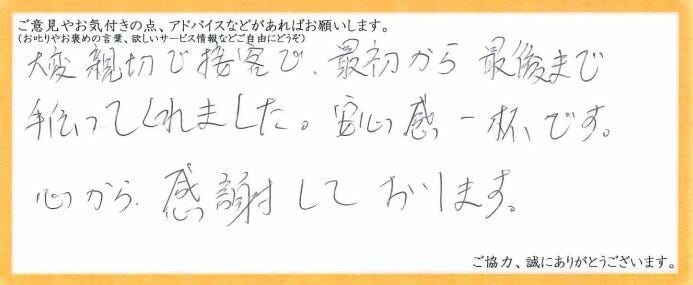 ご意見やお気付きの点、アドバイスなどがあればお願いします。
(お叱りやお褒めの言葉、欲しいサービス情報などご自由にどうぞ)
大変親切で接客で、最初から最後まで
手伝ってくれました。安心感一杯です。
心から感謝しております。
ご協力、誠にありがとうございます。